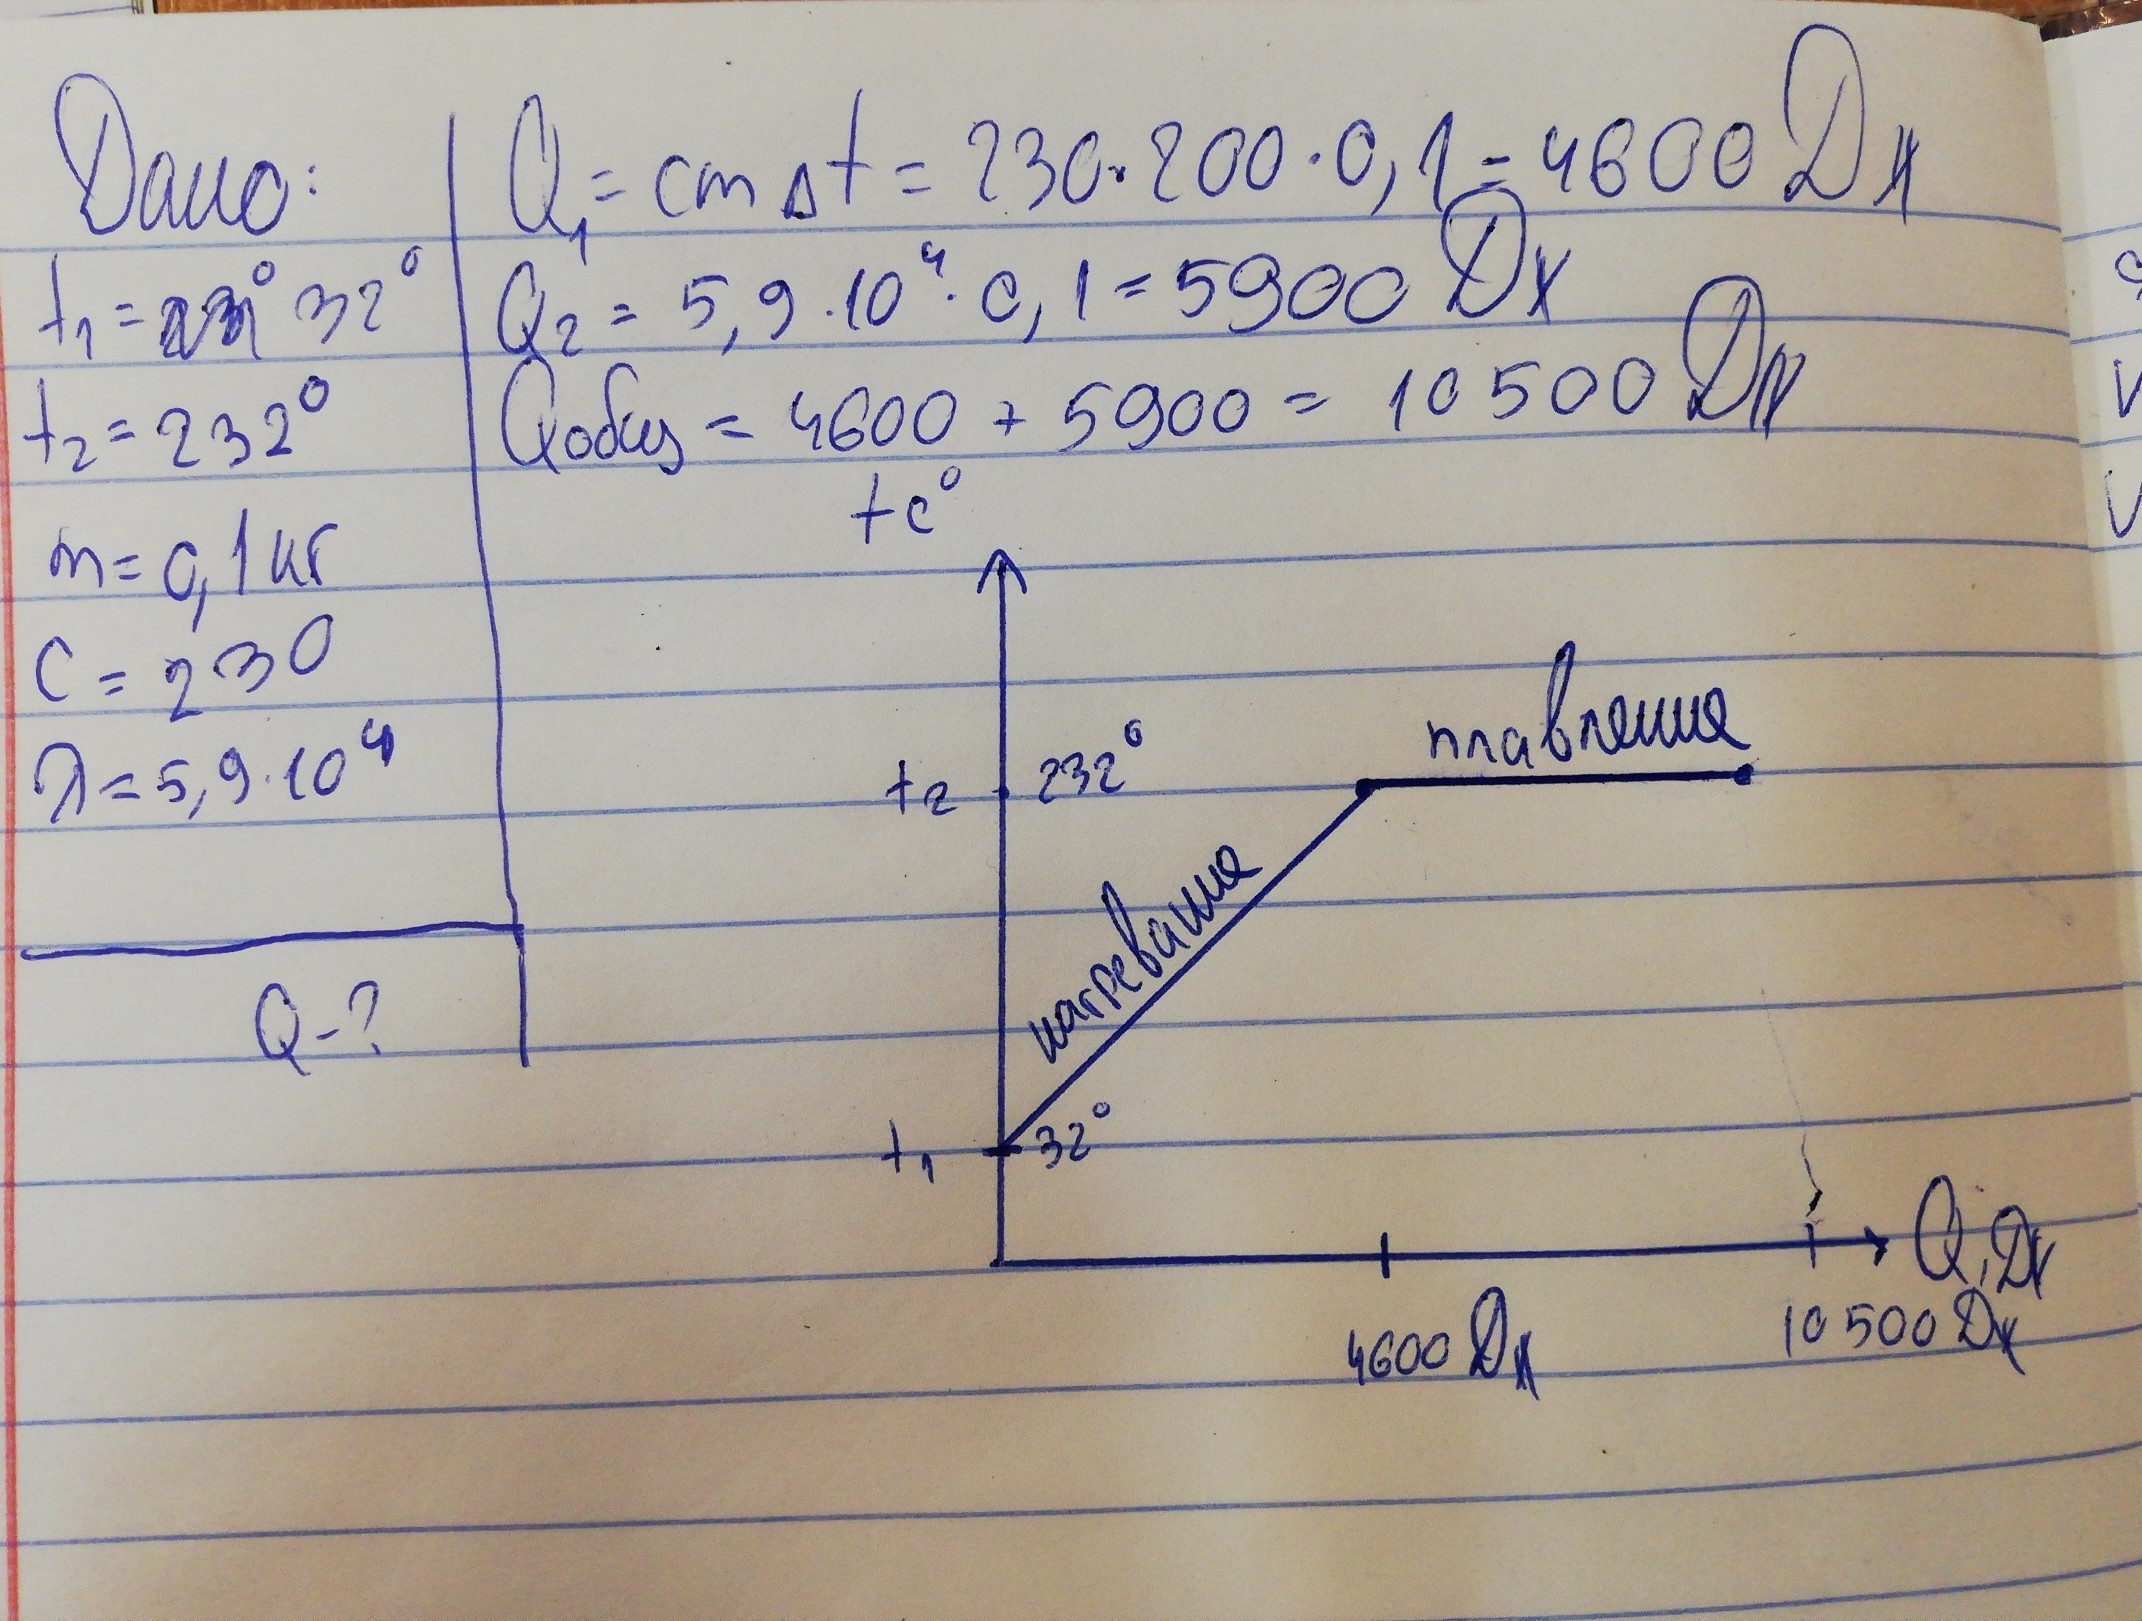 Дано:
t₁ = 32°
t₂ = 232°
m = 0,1 кг
c = 230
λ = 5,9 · 10⁴
Q - ?
Q₁ = cmΔt = 230 · 200 · 0,1 = 4600 Дж
Q₂ = 5,9 · 10⁴ · 0,1 = 5900 Дж
Qобщ = 4600 + 5900 = 10 500 Дж
t c°
t₂ 232° плавление
нагревание
t₁ 32°
Q, Дж
4600 Дж 10 500 Дж